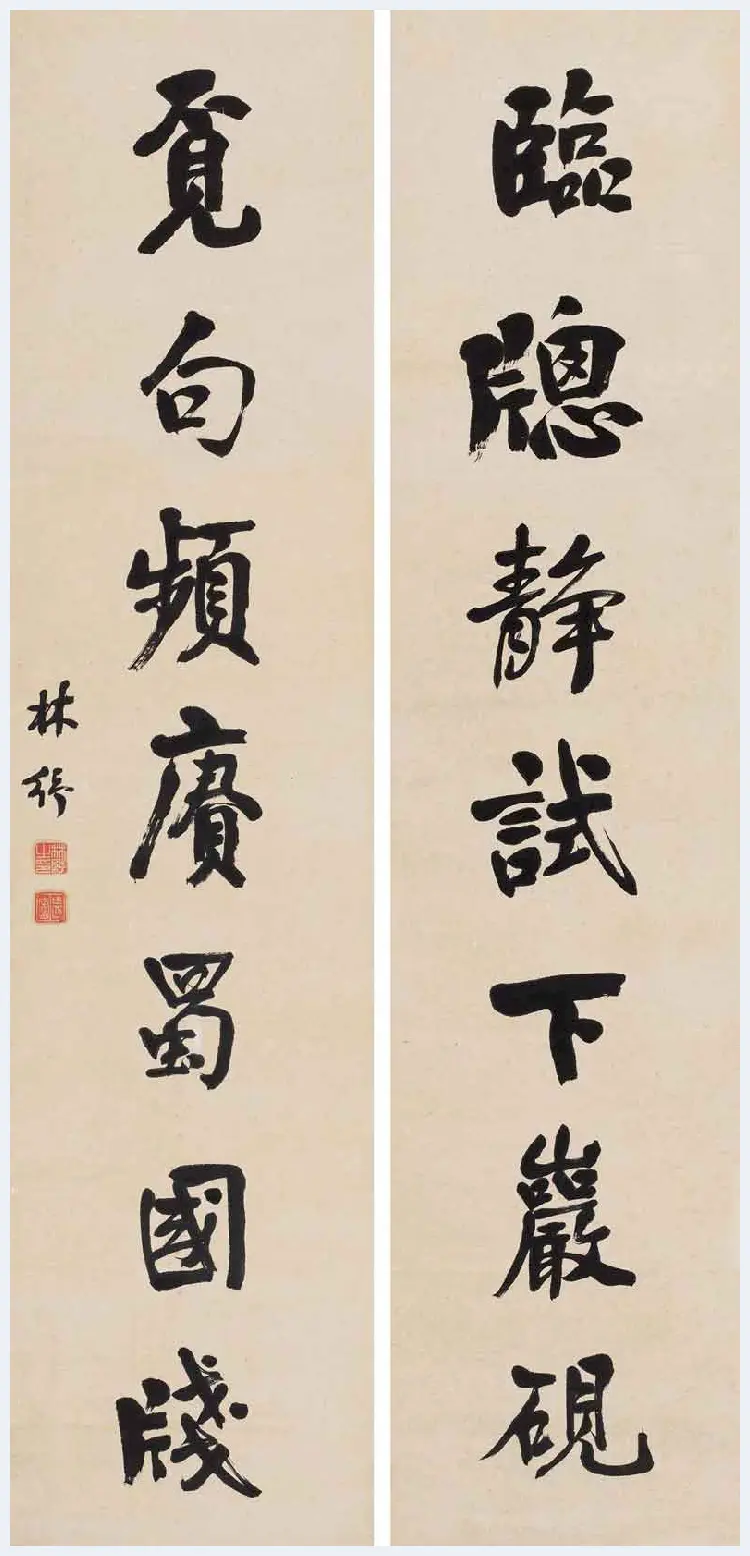 臨牕静試下巖硯
覔句頻賡蜀國牋
林紓